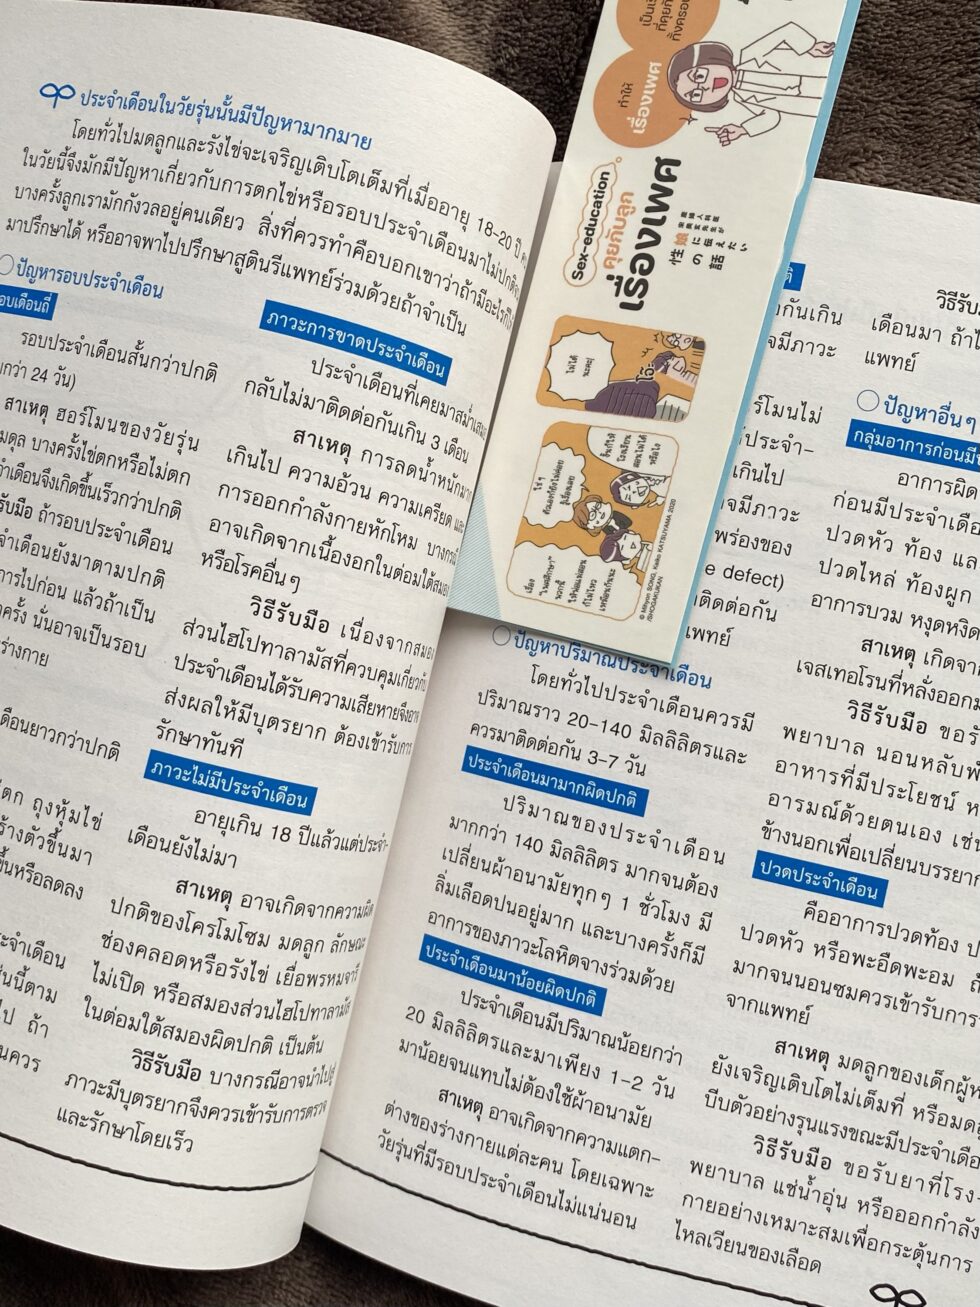 ประจำเดือนในวัยรุ่นนั้นมีปัญหามากมาย
โดยทั่วไปมดลูกและรังไข่จะเจริญเติบโตเต็มที่เมื่ออายุ 18-20 ปี
ในวัยนี้จึงมักมีปัญหาเกี่ยวกับการตกไข่หรือรอบประจำเดือนมาไม่ปกติ
บางครั้งลูกเรามักกังวลอยู่คนเดียว สิ่งที่ควรทำคือบอกเขาว่าถ้ามีอะไรก็
มาปรึกษาได้ หรืออาจพาไปปรึกษาสูตินรีแพทย์ร่วมด้วยถ้าจำเป็น
ปัญหารอบประจำเดือน
อบเดือนถี่
รอบประจำเดือนสั้นกว่าปกติ
กว่า 24 วัน)
สาเหตุ ฮอร์โมนของวัยรุ่น
มดุล บางครั้งไข่ตกหรือไม่ตก
จำเดือนจึงเกิดขึ้นเร็วกว่าปกติ
รับมือ ถ้ารอบประจำเดือน
จำเดือนยังมาตามปกติ
การไปก่อน แล้วถ้าเป็น
ครั้ง นั่นอาจเป็นรอบ
ร่างกาย
ดือนยาวกว่าปกติ
ตก ถุงหุ้มไข่
ร้างตัวขึ้นมา
ขึ้นหรือลดลง
ะจำเดือน
ช่นนี้ตาม
ไป ถ้า
นควร
ภาวะการขาดประจำเดือน
ประจำเดือนที่เคยมาสม่ำเสมอ
กลับไม่มาติดต่อกันเกิน 3 เดือน
สาเหตุ การลดน้ำหนักมาก
เกินไป ความอ้วน ความเครียด และ
การออกกำลังกายหักโหม บางกรณี
อาจเกิดจากเนื้องอกในต่อมใต้สมอง
หรือโรคอื่นๆ
วิธีรับมือ เนื่องจากสมอง
ส่วนไฮโปทาลามัสที่ควบคุมเกี่ยวกับ
ประจำเดือนได้รับความเสียหายจึงอาจ
ส่งผลให้มีบุตรยาก ต้องเข้ารับการ
รักษาทันที
ภาวะไม่มีประจำเดือน
อายุเกิน 18 ปีแล้วแต่ประจำ-
เดือนยังไม่มา
สาเหตุ อาจเกิดจากความผิด
ปกติของโครโมโซม มดลูก ลักษณะ
ช่องคลอดหรือรังไข่ เยื่อพรหมจารี
ไม่เปิด หรือสมองส่วนไฮโปทาลามัส
ในต่อมใต้สมองผิดปกติ เป็นต้น
วิธีรับมือ บางกรณีอาจนำไปสู่
ภาวะมีบุตรยากจึงควรเข้ารับการตรวจ
และรักษาโดยเร็ว
ทำให้
เรื่องเพศ
Sex-education
คุยกับลูก
เรื่องเพศ
産婦人科医
宋美玄先生が
娘に伝えたい
性の話
ไม่ได้
นะคะ
โอ๊ะ
เรื่อง
"เพศศึกษา"
พวกนี้
ให้พ่อแม่สอน
ก็ไม่ไหว
เหมือนกันนะ
ใช่ๆ
© Mihyon SONG, Keiko KATSUYAMA 2020
/SHOGAKUKAN
กันเกิน
จมีภาวะ
ร์โมนไม่
ประจำ-
เกินไป
จมีภาวะ
พร่องของ
e defect)
ติดต่อกัน
แพทย์
ปัญหาปริมาณประจำเดือน
โดยทั่วไปประจำเดือนควรมี
ปริมาณราว 20-140 มิลลิลิตรและ
ควรมาติดต่อกัน 3-7 วัน
ประจำเดือนมามากผิดปกติ
ปริมาณของประจำเดือน
มากกว่า 140 มิลลิลิตร มากจนต้อง
เปลี่ยนผ้าอนามัยทุกๆ 1 ชั่วโมง มี
ลิ่มเลือดปนอยู่มาก และบางครั้งก็มี
อาการของภาวะโลหิตจางร่วมด้วย
ประจำเดือนมาน้อยผิดปกติ
ประจำเดือนมีปริมาณน้อยกว่า
20 มิลลิลิตรและมาเพียง 1-2 วัน
มาน้อยจนแทบไม่ต้องใช้ผ้าอนามัย
สาเหตุ อาจเกิดจากความแตก-
ต่างของร่างกายแต่ละคน โดยเฉพาะ
วัยรุ่นที่มีรอบประจำเดือนไม่แน่นอน
วิธีรับ
เดือนมา ถ้า
แพทย์
ปัญหาอื่นๆ
กลุ่มอาการก่อนมี
อาการผิด
ก่อนมีประจำเดือ
ปวดหัว ท้อง แล
ปวดไหล่ ท้องผูก
อาการบวม หงุดหงิด
สาเหตุ เกิดจา
เจสเทอโรนที่หลั่งออกม
วิธีรับมือ ขอรั
พยาบาล นอนหลับพั
อาหารที่มีประโยชน์ ห
อารมณ์ด้วยตนเอง เช่น
ข้างนอกเพื่อเปลี่ยนบรรยาก
ปวดประจำเดือน
คืออาการปวดท้อง ป
ปวดหัว หรือพะอืดพะอม ถ้
มากจนนอนซมควรเข้ารับการ
จากแพทย์
สาเหตุ มดลูกของเด็กผู้ห
ยังเจริญเติบโตไม่เต็มที่ หรือมด
บีบตัวอย่างรุนแรงขณะมีประจำเดือ
วิธีรับมือ ขอรับยาที่โรง-
พยาบาล แช่น้ำอุ่น หรือออกกำลัง
กายอย่างเหมาะสมเพื่อกระตุ้นการ
ไหลเวียนของเลือด